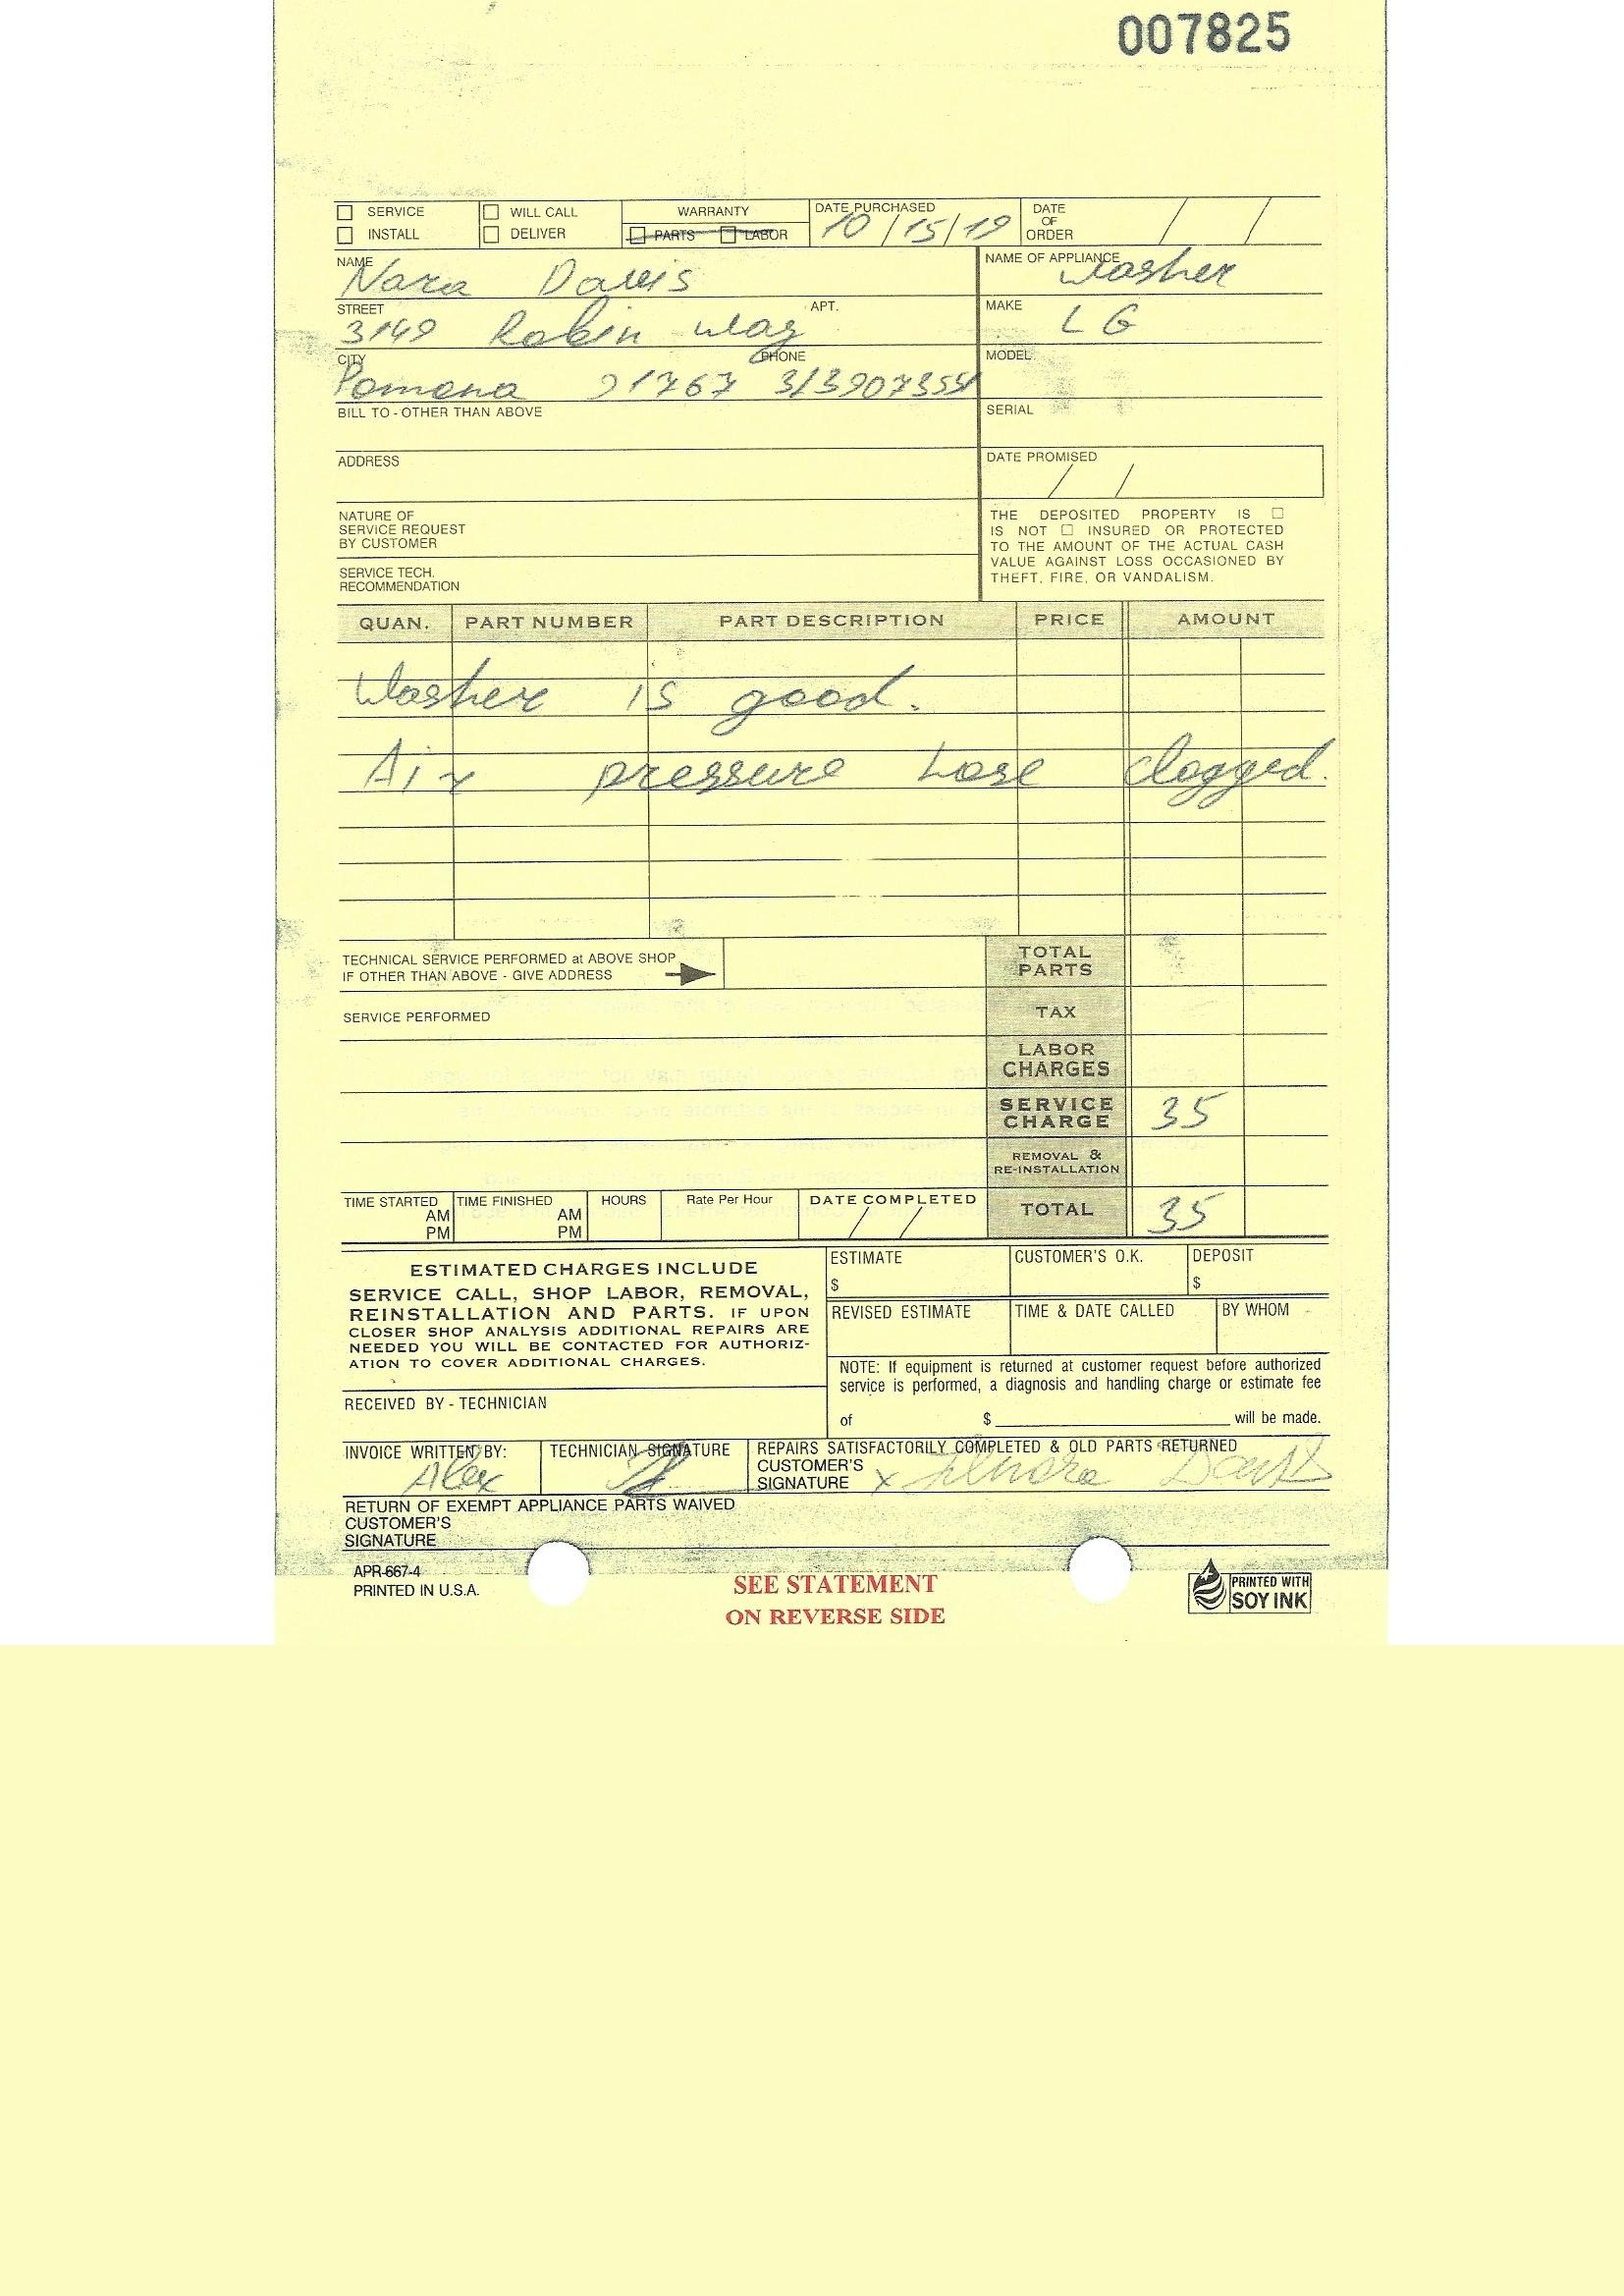 007825
SERVICE WILL CALL WARRANTY DATE PURCHASED DATE OF ORDER
INSTALL DELIVER PARTS LABOR 10/15/19 / /
NAME NAME OF APPLIANCE
Nara Davis washer
STREET APT. MAKE
3149 Robin way LG
CITY PHONE MODEL
Pomona 91767
BILL TO - OTHER THAN ABOVE SERIAL
ADDRESS DATE PROMISED
/ /
NATURE OF
SERVICE REQUEST
BY CUSTOMER
SERVICE TECH.
RECOMMENDATION
THE DEPOSITED PROPERTY IS ☐
IS NOT ☐ INSURED OR PROTECTED
TO THE AMOUNT OF THE ACTUAL CASH
VALUE AGAINST LOSS OCCASIONED BY
THEFT, FIRE, OR VANDALISM.
QUAN. PART NUMBER PART DESCRIPTION PRICE AMOUNT
Washer is good.
Air pressure hose clogged.
TECHNICAL SERVICE PERFORMED at ABOVE SHOP
IF OTHER THAN ABOVE - GIVE ADDRESS
TOTAL PARTS
SERVICE PERFORMED
TAX
LABOR CHARGES
SERVICE CHARGE 35
REMOVAL & RE-INSTALLATION
TIME STARTED AM PM TIME FINISHED AM PM HOURS Rate Per Hour DATE COMPLETED / /
TOTAL 35
ESTIMATED CHARGES INCLUDE
SERVICE CALL, SHOP LABOR, REMOVAL,
REINSTALLATION AND PARTS. IF UPON
CLOSER SHOP ANALYSIS ADDITIONAL REPAIRS ARE
NEEDED YOU WILL BE CONTACTED FOR AUTHORIZ-
ATION TO COVER ADDITIONAL CHARGES.
ESTIMATE CUSTOMER'S O.K. DEPOSIT
$ $
REVISED ESTIMATE TIME & DATE CALLED BY WHOM
NOTE: If equipment is returned at customer request before authorized
service is performed, a diagnosis and handling charge or estimate fee
of $ will be made.
RECEIVED BY - TECHNICIAN
INVOICE WRITTEN BY: TECHNICIAN SIGNATURE REPAIRS SATISFACTORILY COMPLETED & OLD PARTS RETURNED
Alex CUSTOMER'S
SIGNATURE X
RETURN OF EXEMPT APPLIANCE PARTS WAIVED
CUSTOMER'S
SIGNATURE
APR-667-4
PRINTED IN U.S.A.
SEE STATEMENT
ON REVERSE SIDE
PRINTED WITH
SOY INK